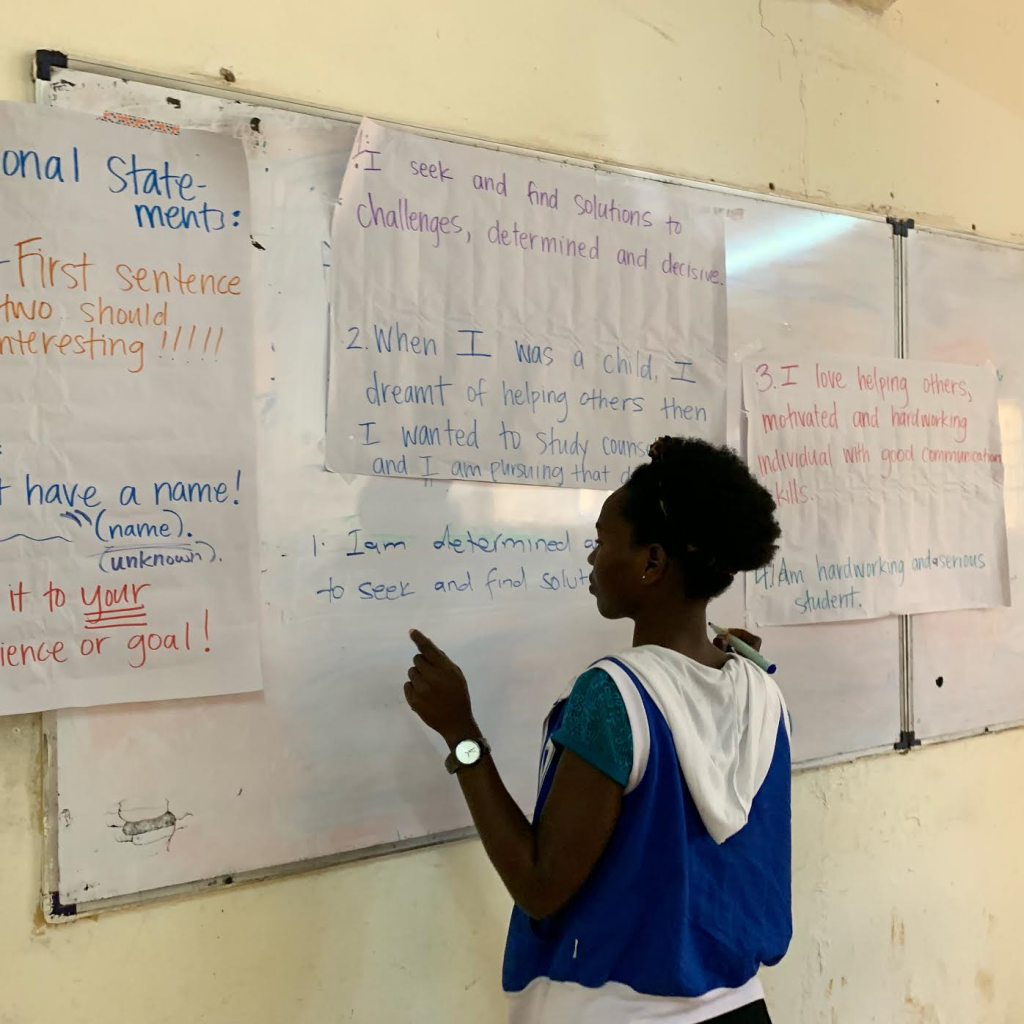 onal State-
ments:
-First sentence
two should
nteresting !!!!!
t have a name!
(name).
(unknown).
it to your
ience or goal!
1. I seek and find solutions to
challenges, determined and decisive.
2. When I was a child, I
dreamt of helping others then
I wanted to study couns
and I am pursuing that d
1. I am determined a
to seek and find solut
3. I love helping others,
motivated and hardworking
individual with good communication
skills.
4. Am hardworking and a serious
student.